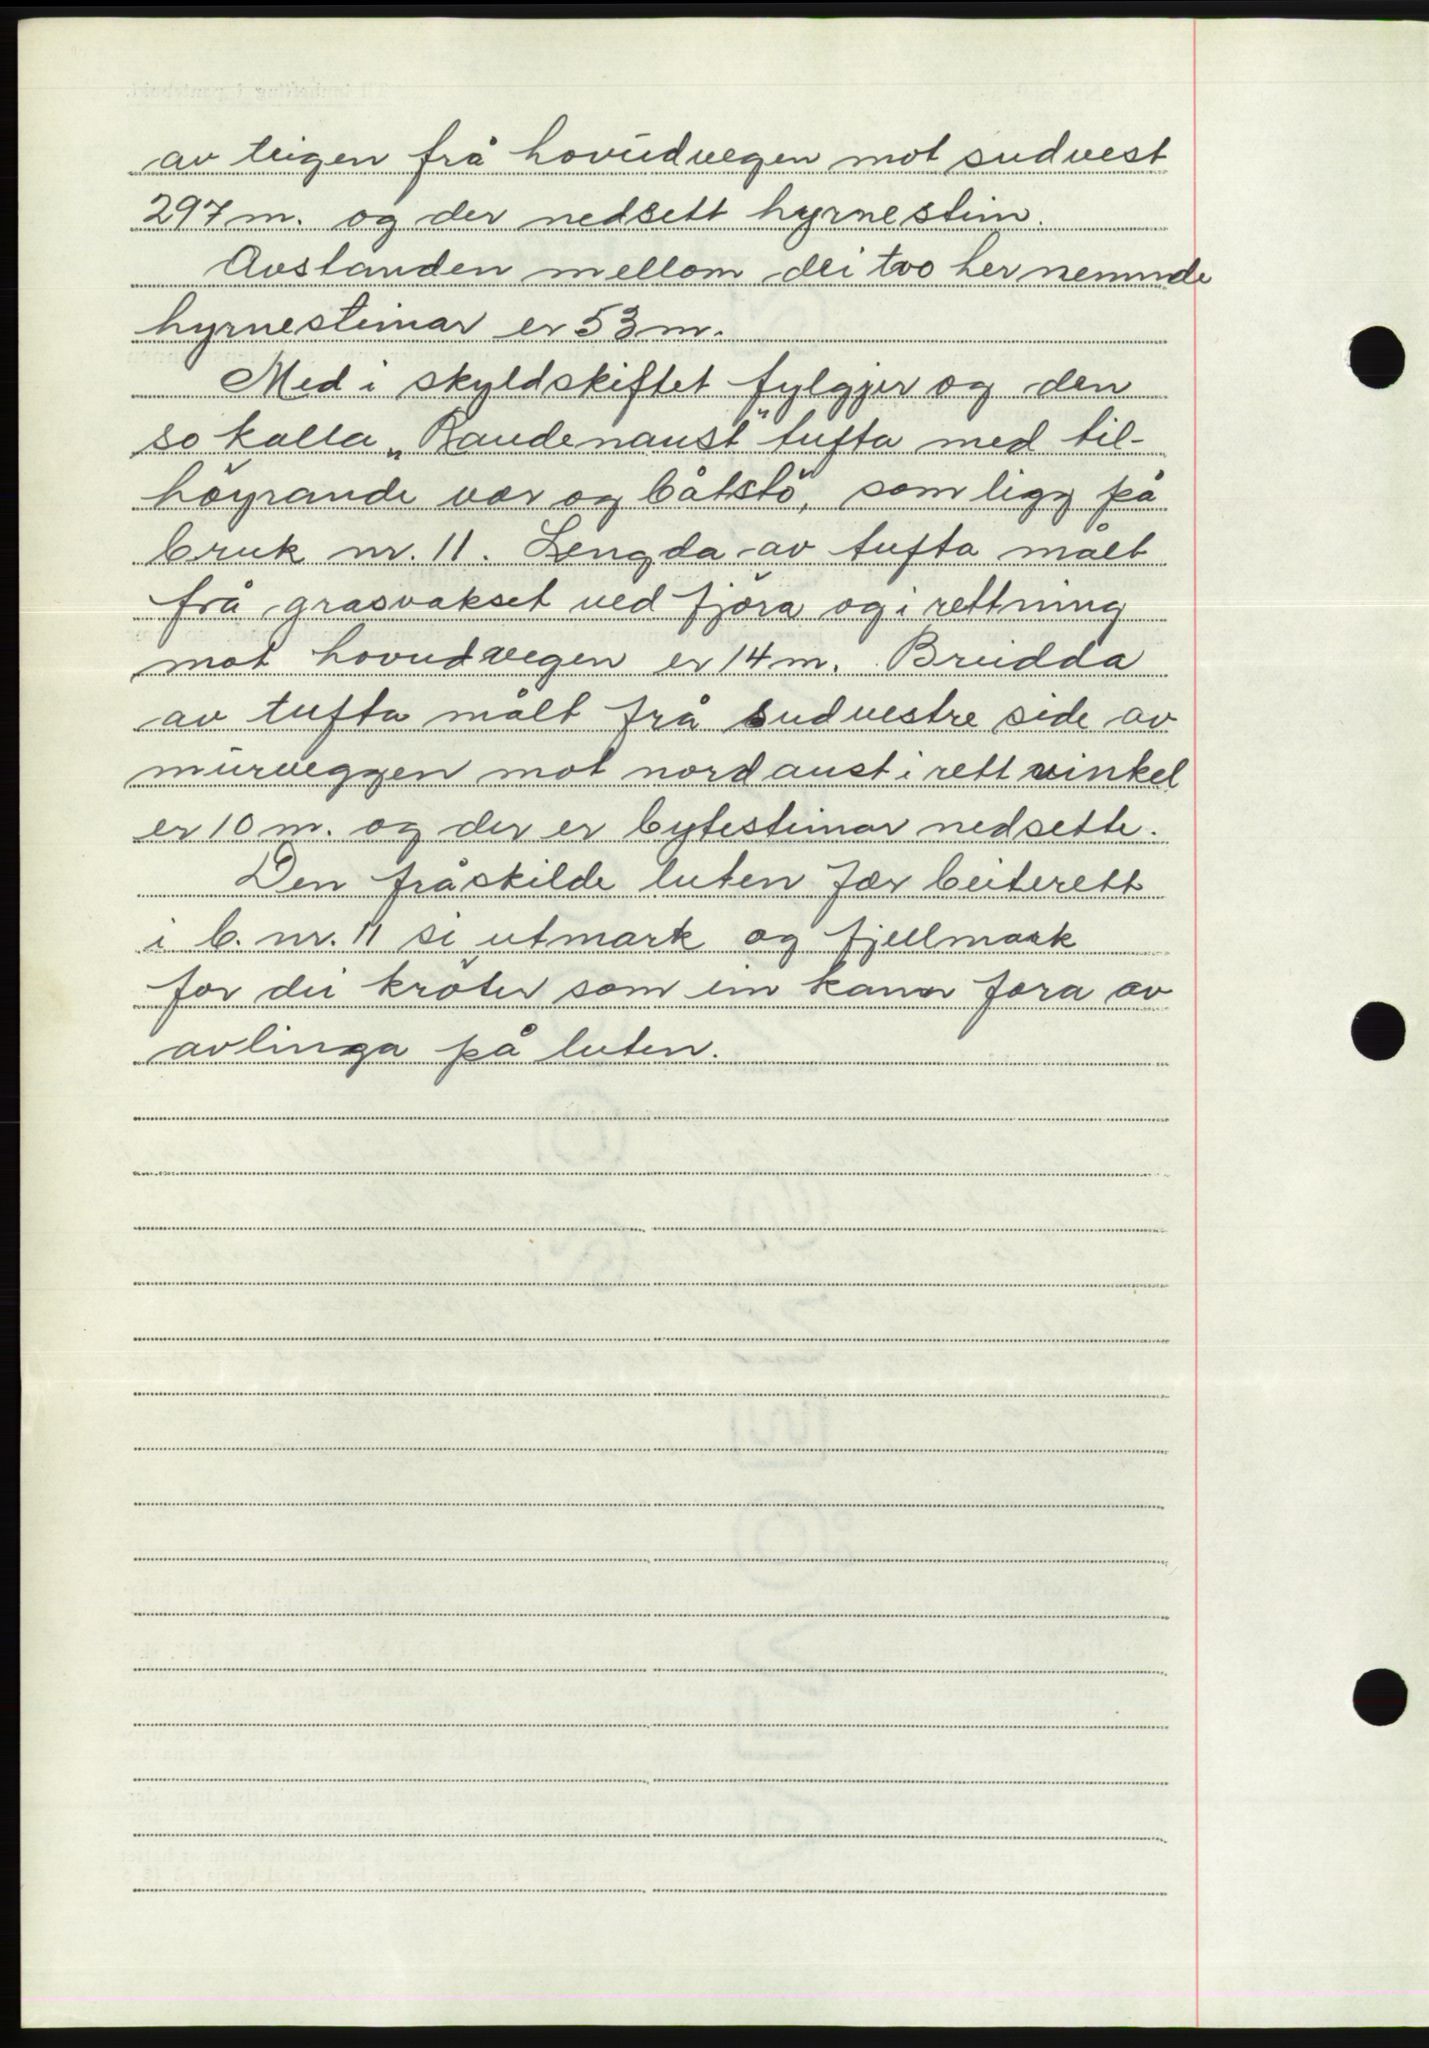 av teigen frå hovudvegen mot sudvest
297 m. og der nedsett hyrnestein.
Avstanden mellom dei tvo her nemnde
hyrnesteinar er 53 m.
Med i skyldskiftet fylgjer og den
so kalla „Raudenaust" tufta med til-
höyrande vor og båtstö, som ligg på
bruk nr. 11. Lengda av tufta målt
frå grasvakset ved fjöra og i rettning
mot hovudvegen er 14 m. Breidda
av tufta målt frå sudvestre side av
murveggen mot nordaust i rett vinkel
er 10 m. og der er bytesteinar nedsette.
Den fråskilde luten fær beiterett
i b. nr. 11 si utmark og fjellmark
for dei kröter som ein kann fora av
avlinga på luten.